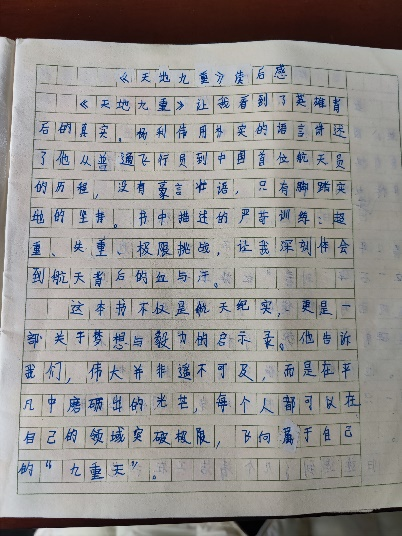 《天地九重》读后感
《天地九重》让我看到了英雄背
后的真实。杨利伟用朴实的语言讲述
了他从普通飞行员到中国首位航天员
的历程，没有豪言壮语，只有脚踏实
地的坚持。书中描述的严苛训练：超
重、失重、极限挑战，让我深刻体会
到航天背后的血与汗。
这本书不仅是航天纪实，更是一
部关于梦想与毅力的启示录。他告诉
我们，伟大并非遥不可及，而是在平
凡中磨砺出的光芒，每个人都可以在
自己的领域突破极限，飞向属于自己
的“九重天”。